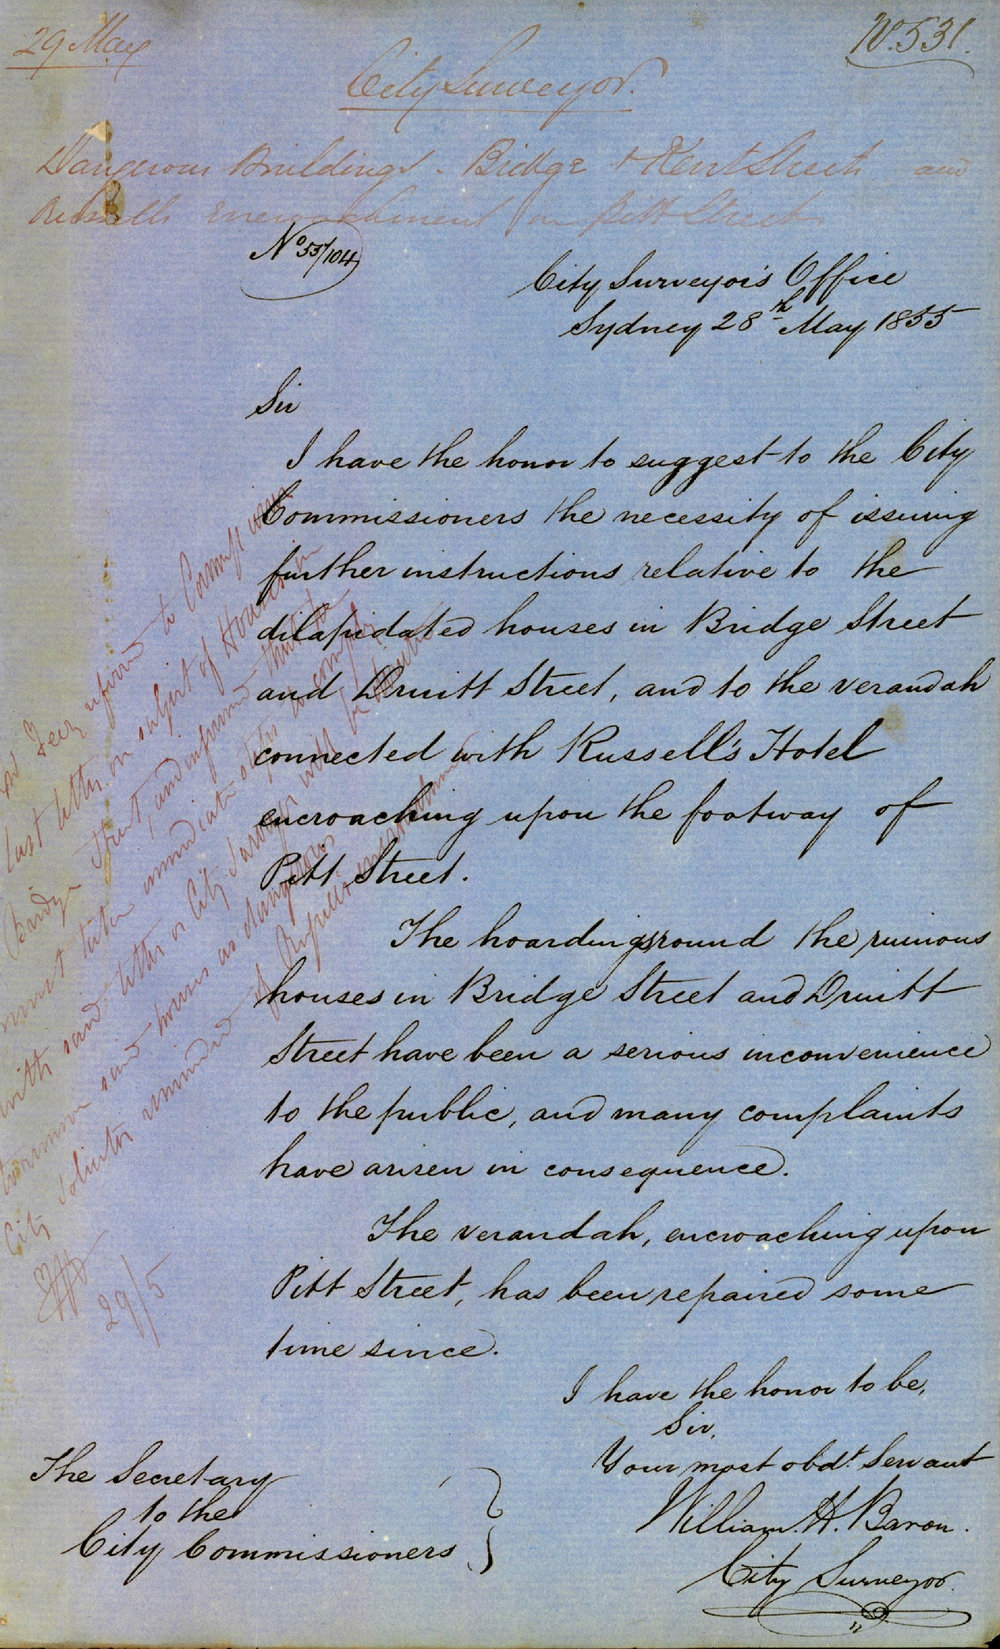 29 May
No. 531.
City Surveyor.
Dangerous Buildings - Bridge & Kent Streets and
Russells Encroachment in Pitt Street
No 55/104
City Surveyor's Office
Sydney 28th May 1855
Sir
I have the honor to suggest to the City
Commissioners the necessity of issuing
further instructions relative to the
dilapidated houses in Bridge Street
and Druitt Street, and to the verandah
connected with Russell's Hotel
encroaching upon the footway of
Pitt Street.
The hoardings round the ruinous
houses in Bridge Street and Druitt
Street have been a serious inconvenience
to the public, and many complaints
have arisen in consequence.
The verandah, encroaching upon
Pitt Street, has been repaired some
time since.
I have the honor to be,
Sir,
Your most obdt. Servant
William H. Baron.
City Surveyor.
The Secretary
to the
City Commissioners
last letter on subject of Houses in
Bridge Street, and informed that
immediate steps to comply
with said letter or City Surveyor will be
said houses as dangerous
City Solicitor reminded of encroachment
29/5